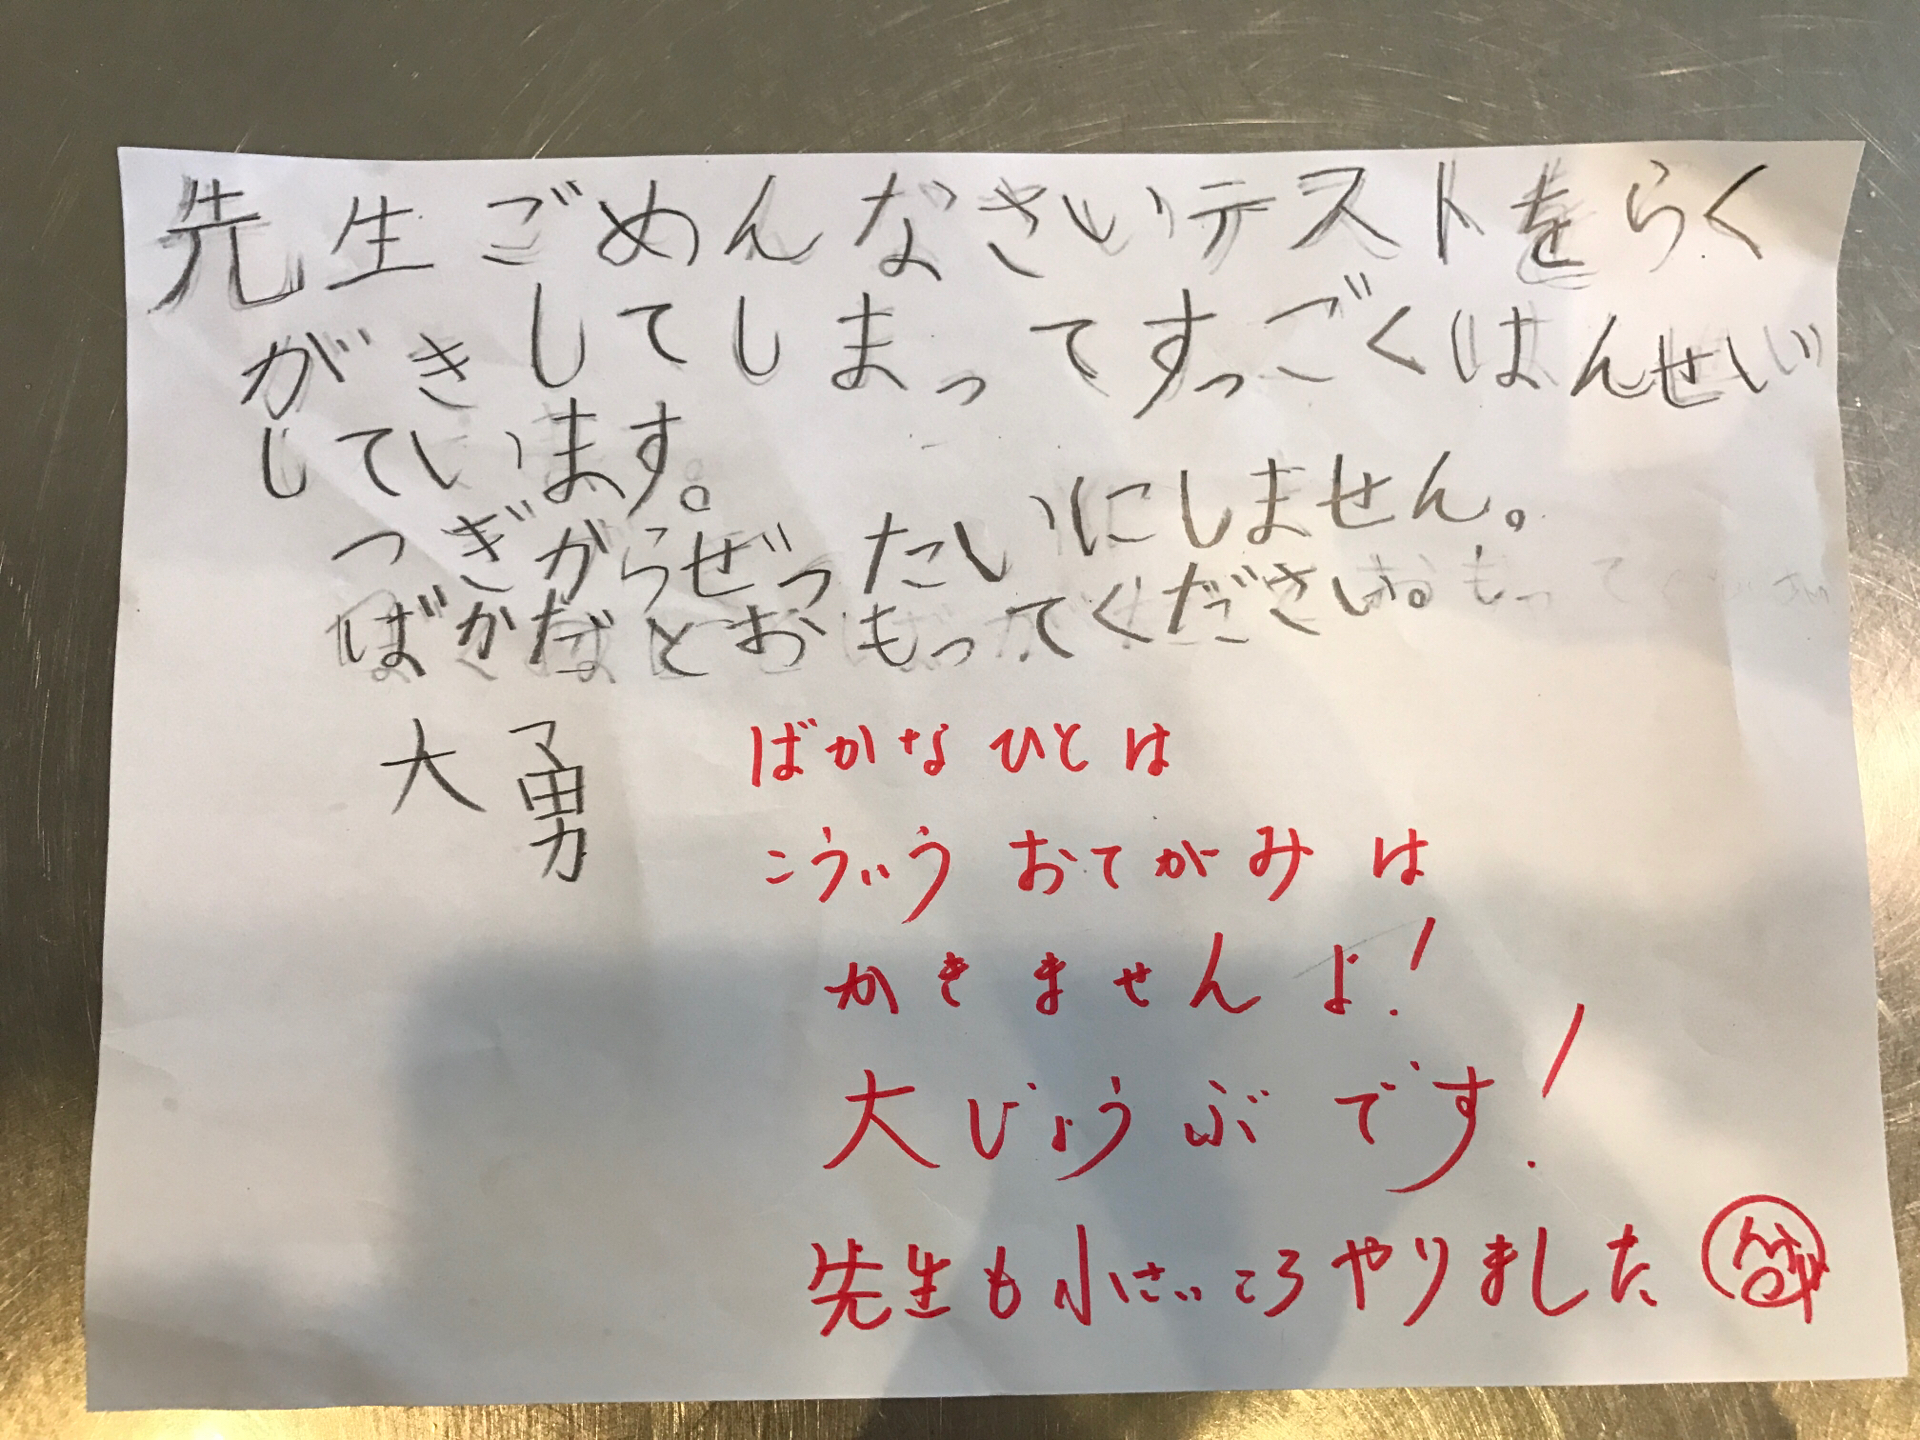 先生ごめんなさいテストをらく
がきしてしまってすっごくはんせい
しています。
つぎからぜったいにしません。
ばかだとおもってください。
大勇
ばかなひとは
こういうおてがみは
かきませんよ!
大じょうぶです!
先生も小さいころやりました